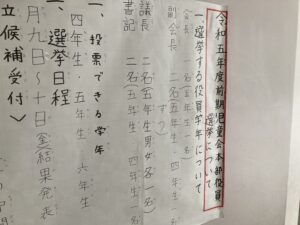 令和五年度前期児童会本部役員
選挙について
一、選挙する役員学年について
会長 一名(六年生)
副会長 二名(五年生 四年生 一名
ずつ)
議長 二名(五年生男女各一名)
書記 二名(五年生 四年生 一名
一、投票できる学年
四年生・五年生 六年生
一、選挙日程
月九日~十日(金)結果発表
立候補受付〉